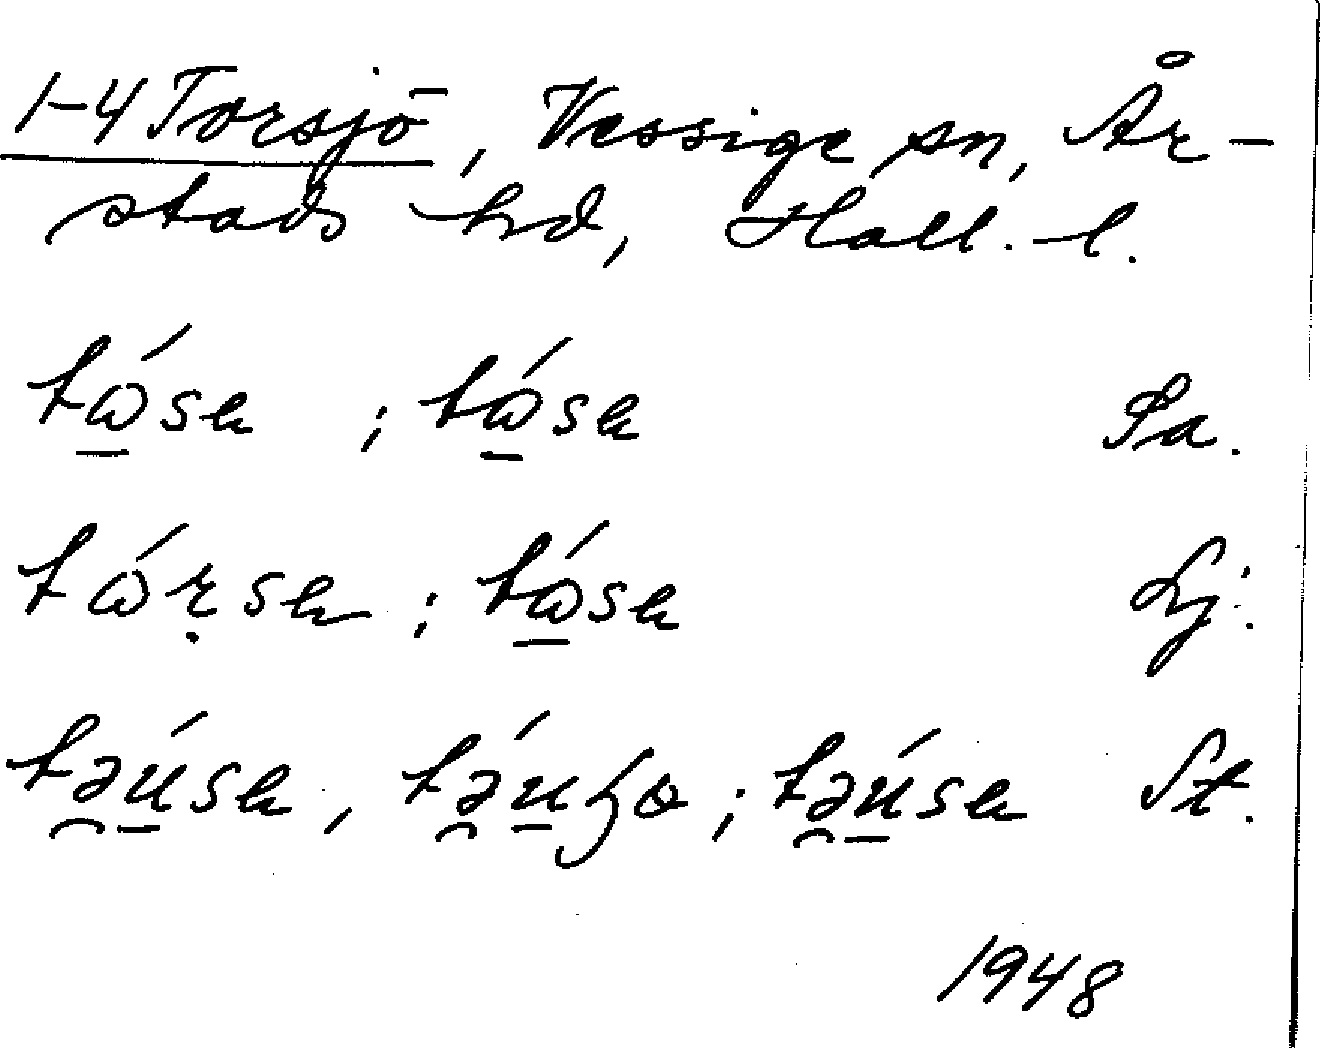 1-4 Torsjö, Vessige sn, År-
stads hd, Hall. l.
tώ̲sə ; tώ̲sə Sa.
tώṛsə ; tώ̲sə Lj.
tə̯ú̲sə, tə̯ú̲ʒo ; tə̯ú̲sə St.
1948